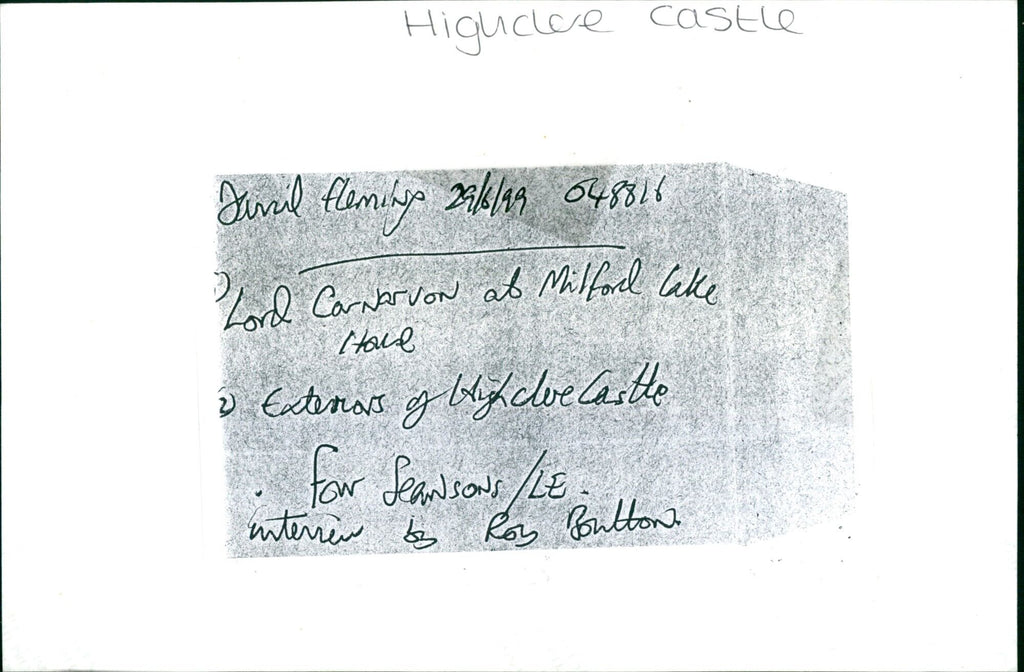 Highclere Castle
David Flemings 29/6/99 048816
1) Lord Carnarvon at Milford Lake
House
2) Exteriors of Highclere Castle
. four Seansons/LE.
interview by Roy Boulton.